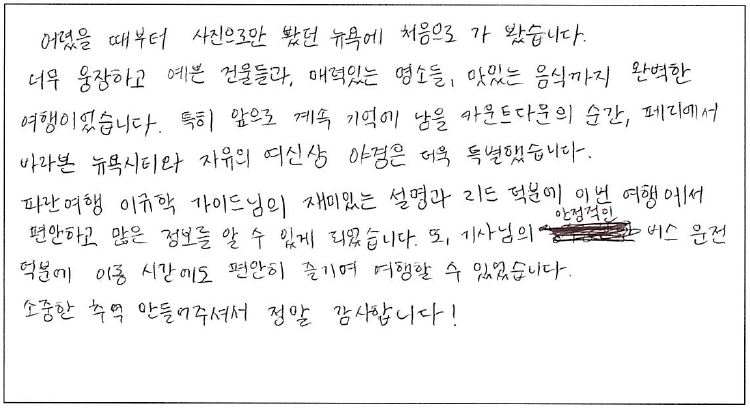 어렸을 때부터 사진으로만 봤던 뉴욕에 처음으로 가 봤습니다.
너무 웅장하고 예쁜 건물들과, 매력있는 명소들, 맛있는 음식까지 완벽한
여행이었습니다. 특히 앞으로 계속 기억에 남을 카운트다운의 순간, 페리에서
바라본 뉴욕시티와 자유의 여신상 야경은 더욱 특별했습니다.
파란여행 이규학 가이드님의 재미있는 설명과 리드 덕분에 이번 여행에서
편안하고 많은 정보들 알 수 있게 되었습니다. 또, 기사님의 안정적인 버스 운전
덕분에 이동 시간에도 편안히 즐기며 여행할 수 있었습니다.
소중한 추억 만들어주셔서 정말 감사합니다!